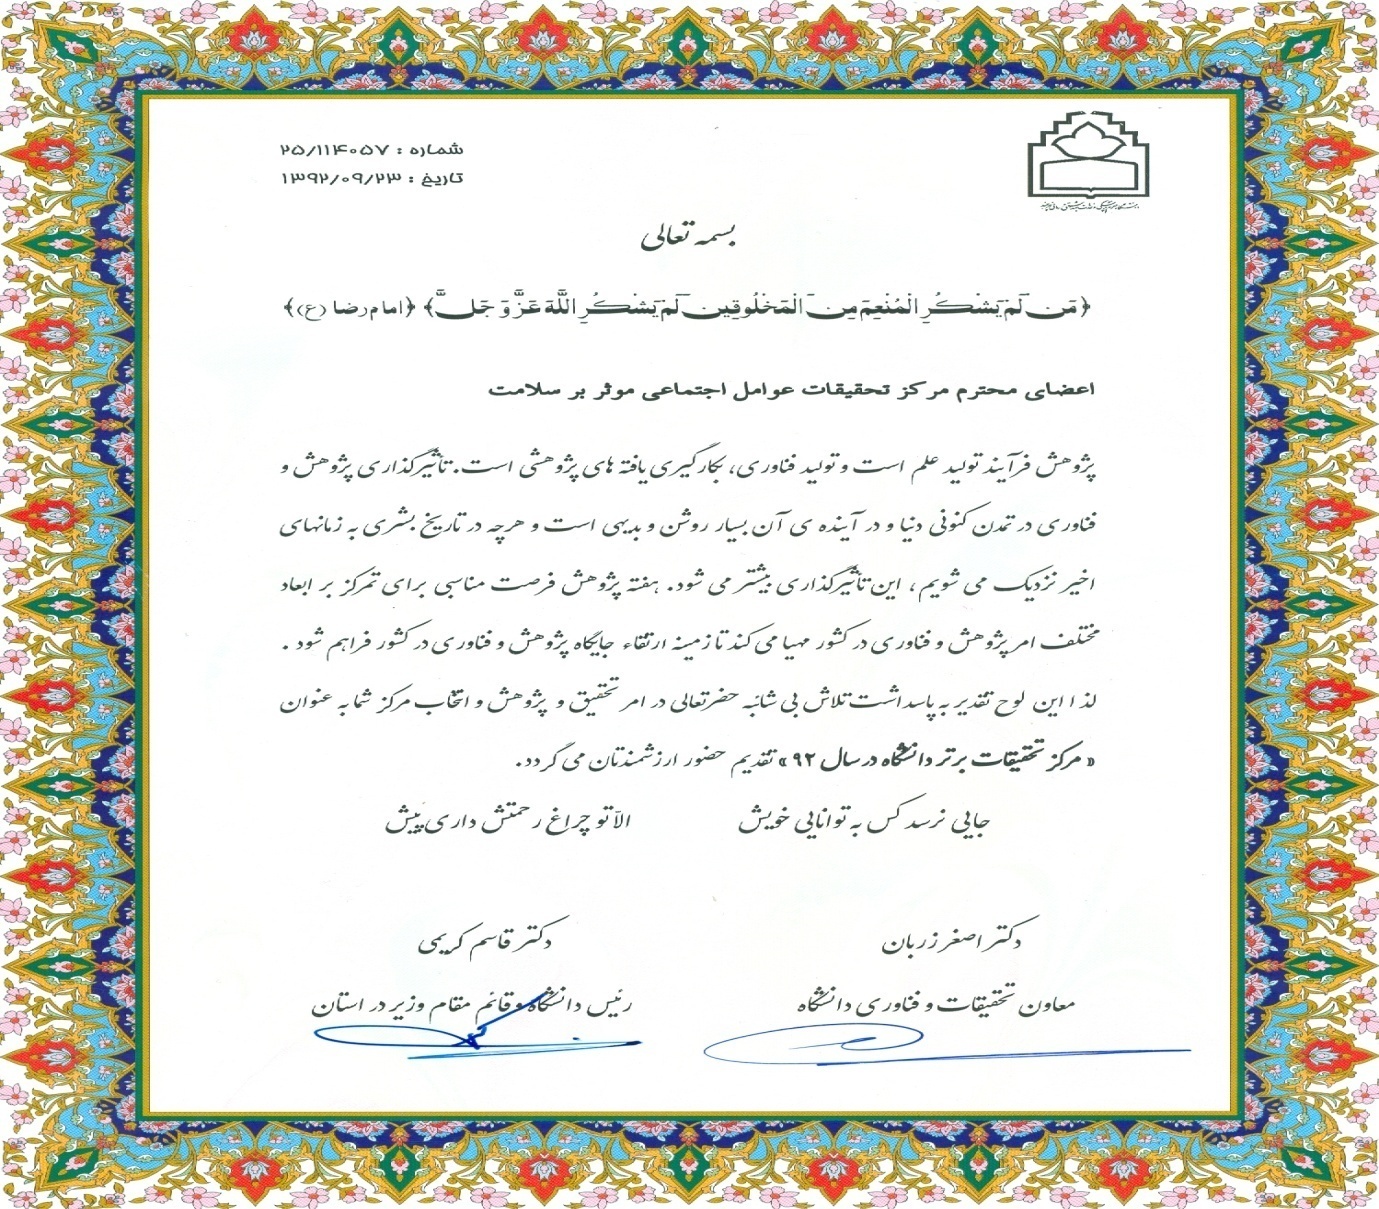 شماره : ۲۵/۱۱۴۰۵۷
تاریخ : ۱۳۹۲/۰۹/۲۳
بسمه تعالی
﴿مَن لَم یَشکُرِ المُنعِمَ مِنَ المَخلُوقین لَم یَشکُرِ اللَّهَ عَزَّ وَ جَلَّ﴾ ﴿امام رضا (ع)﴾
اعضای محترم مرکز تحقیقات عوامل اجتماعی موثر بر سلامت
پژوهش فرآیند تولید علم است و تولید فناوری، بکارگیری یافته های پژوهشی است. تأثیرگذاری پژوهش و
فناوری در تمدن کنونی دنیا و در آینده ی آن بسیار روشن و بدیهی است و هرچه در تاریخ بشری به زمانهای
اخیر نزدیک می شویم، این تأثیرگذاری بیشتر می شود. هفته پژوهش فرصت مناسبی برای تمرکز بر ابعاد
مختلف امر پژوهش و فناوری در کشور مهیا می کند تا زمینه ارتقاء جایگاه پژوهش و فناوری در کشور فراهم شود .
لذا این لوح تقدیر به پاسداشت تلاش بی شائبه حضرتعالی در امر تحقیق و پژوهش و انتخاب مرکز شما به عنوان
« مرکز تحقیقات برتر دانشگاه در سال ۹۲ » تقدیم حضور ارزشمندتان می گردد.
جایی نرسد کس به توانایی خویش الّا تو چراغ رحمتش داری پَیش
دکتر اصغر زربان
معاون تحقیقات و فناوری دانشگاه
دکتر قاسم کریمی
رئیس دانشگاه و قائم مقام وزیر در استان